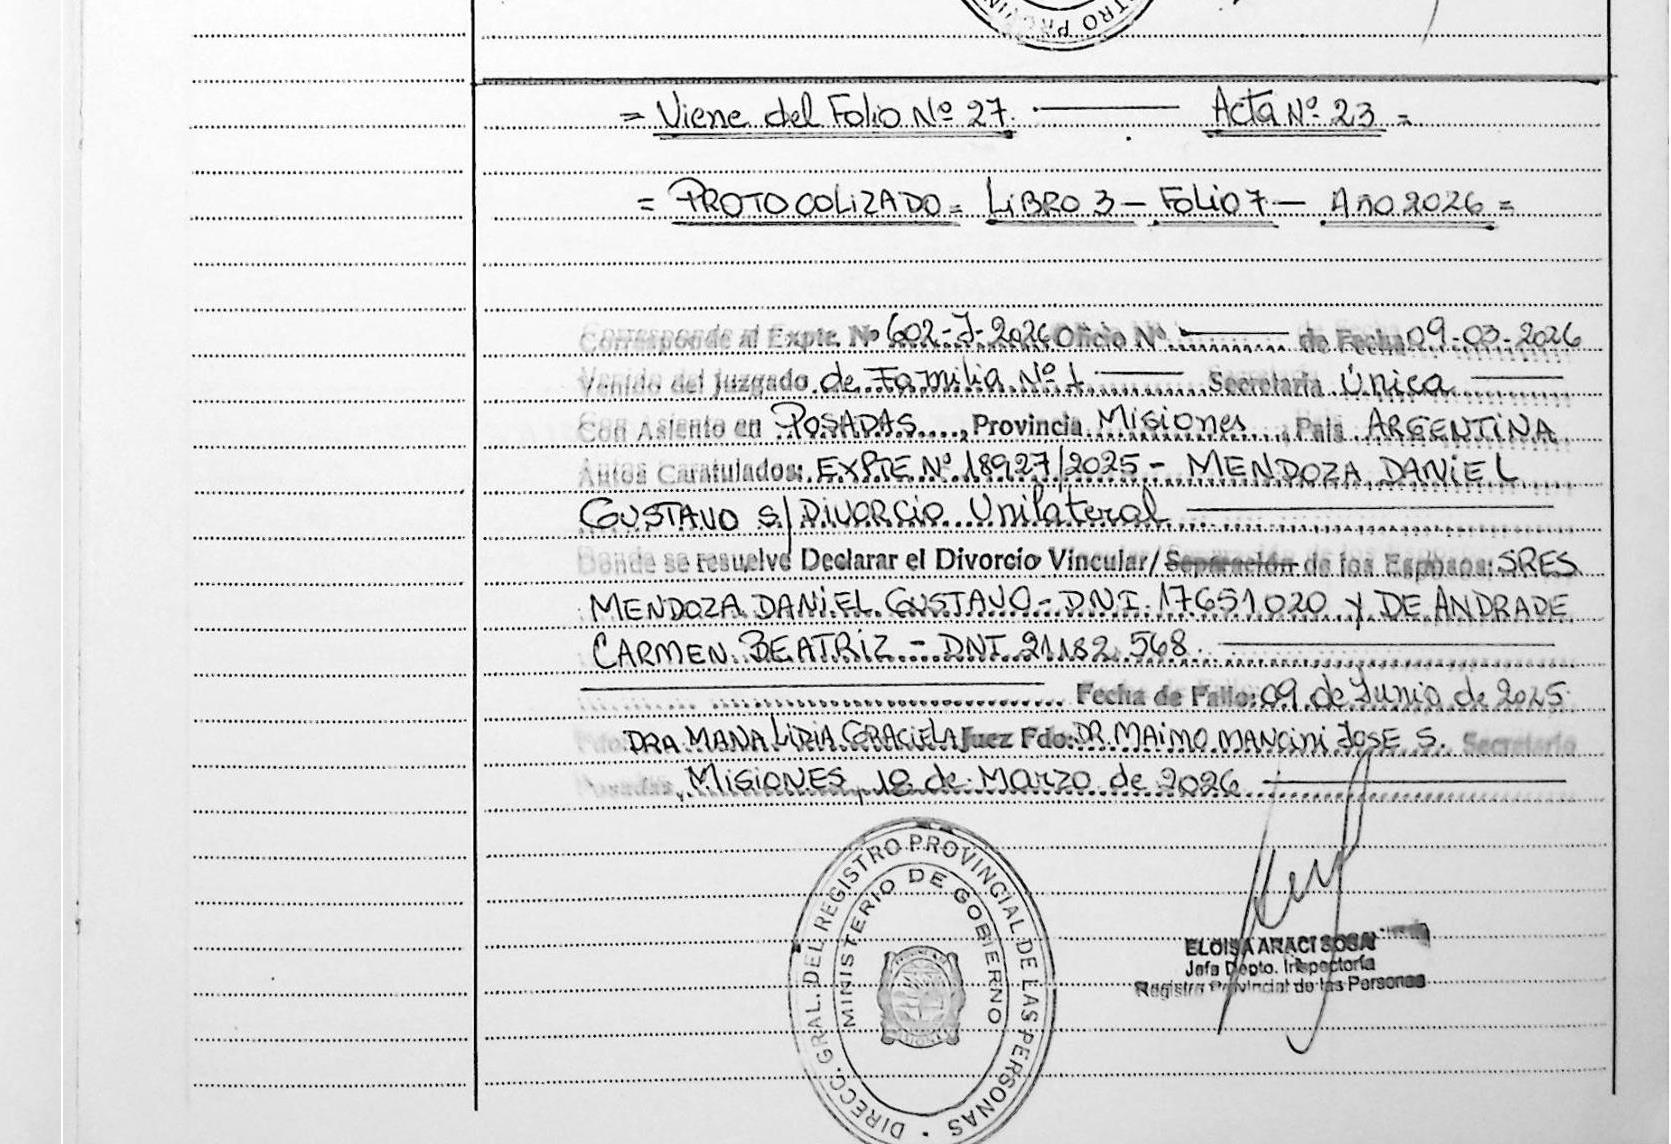 = Viene del Folio Nº 27. ——— Acta Nº 23 =
= PROTOCOLIZADO = LIBRO 3 – FOLIO 7 – AÑO 2026 =
Corresponde al Expte. Nº 602-J-2026 Oficio Nº ——— de Fecha 09-03-2026
Venido del Juzgado de Familia Nº 1 ——— Secretaria Única ———
Con Asiento en POSADAS, Provincia Misiones, Pais ARGENTINA
Autos Caratulados: EXPTE Nº 18927/2025 - MENDOZA DANIEL
GUSTAVO s/ DIVORCIO Unilateral ———
Donde se resuelve Declarar el Divorcio Vincular/Separación de los Esposos: SRES
MENDOZA DANIEL GUSTAVO - DNI. 17651.020 y DE ANDRADE
CARMEN BEATRIZ - DNI 21182.568 ———
——— Fecha de Fallo: 09 de Junio de 2025
Fdo: DRA. MANA LIDIA GRACIELA Juez Fdo: DR. MAIMO MANCINI JOSE S. Secretaria
Posadas, MISIONES, 18 de Marzo de 2026 ———
DIRECC. GRAL. DEL REGISTRO PROVINCIAL DE LAS PERSONAS
MINISTERIO DE GOBIERNO
ELOISA ARACI SOSA
Jefa Dpto. Inspectoría
Registro Provincial de las Personas